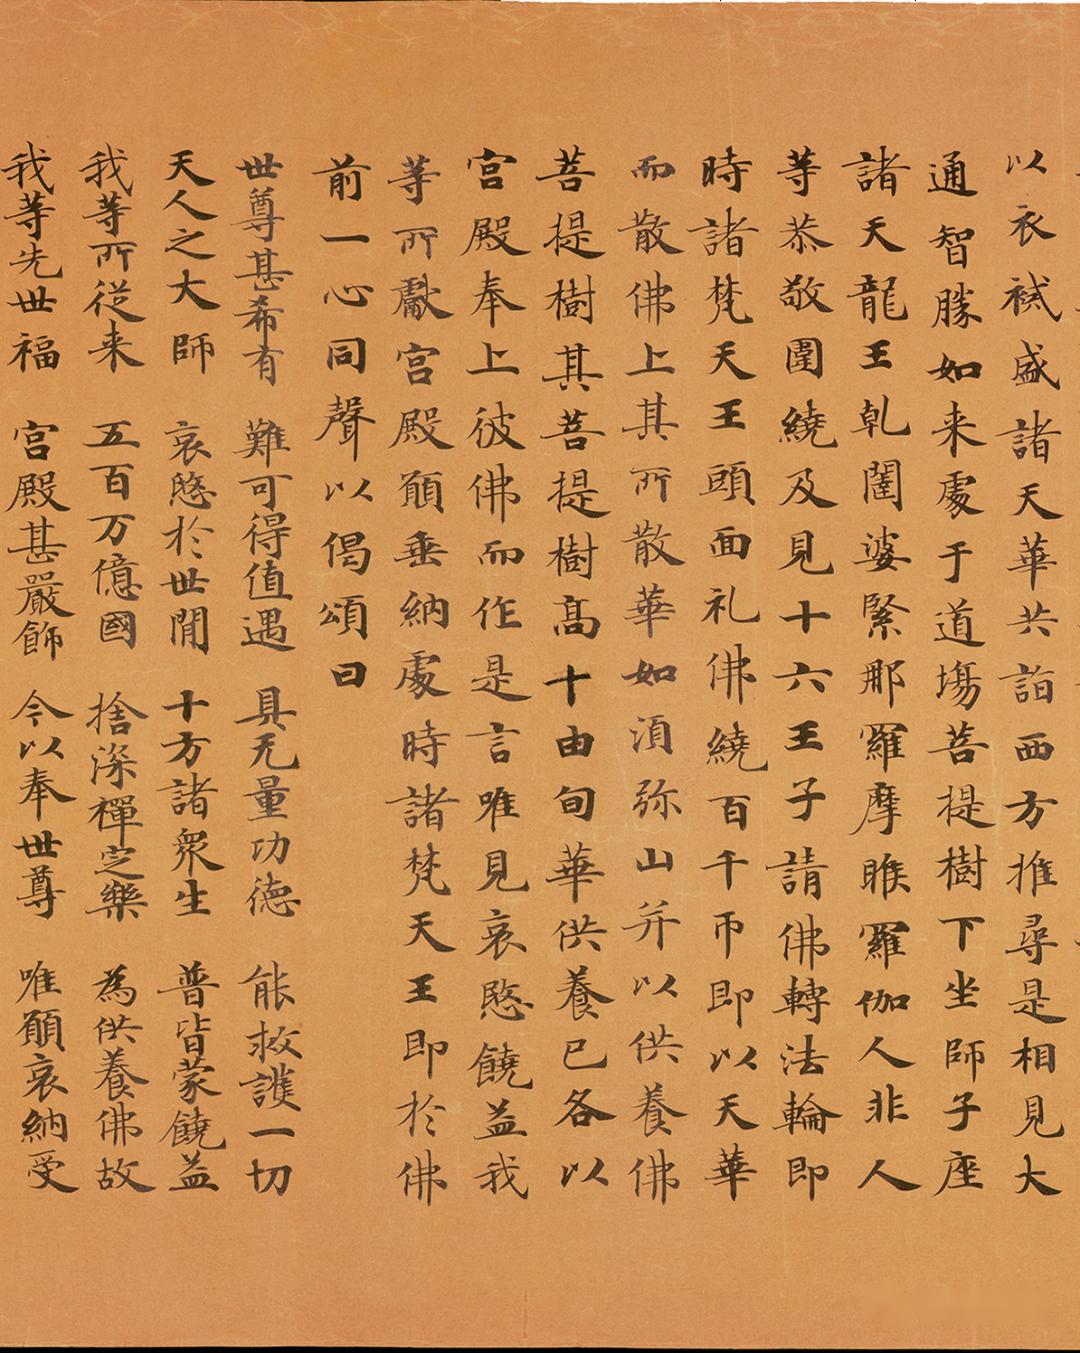 以衣祴盛諸天華共詣西方推尋是相見大
通智勝如来處于道場菩提樹下坐師子座
諸天龍王乹闥婆緊那羅摩睺羅伽人非人
等恭敬圍繞及見十六王子請佛轉法輪即
時諸梵天王頭面礼佛繞百千帀即以天華
而散佛上其所散華如須弥山并以供養佛
菩提樹其菩提樹髙十由旬華供養已各以
宫殿奉上彼佛而作是言唯見哀愍饒益我
等所獻宫殿願垂納處時諸梵天王即於佛
前一心同聲以偈頌曰
世尊甚希有 難可得值遇 具无量功德 能救護一切
天人之大師 哀愍於世閒 十方諸衆生 普皆蒙饒益
我等所従来 五百万億國 捨深禪定樂 為供養佛故
我等先世福 宫殿甚嚴飾 今以奉世尊 唯願哀納受